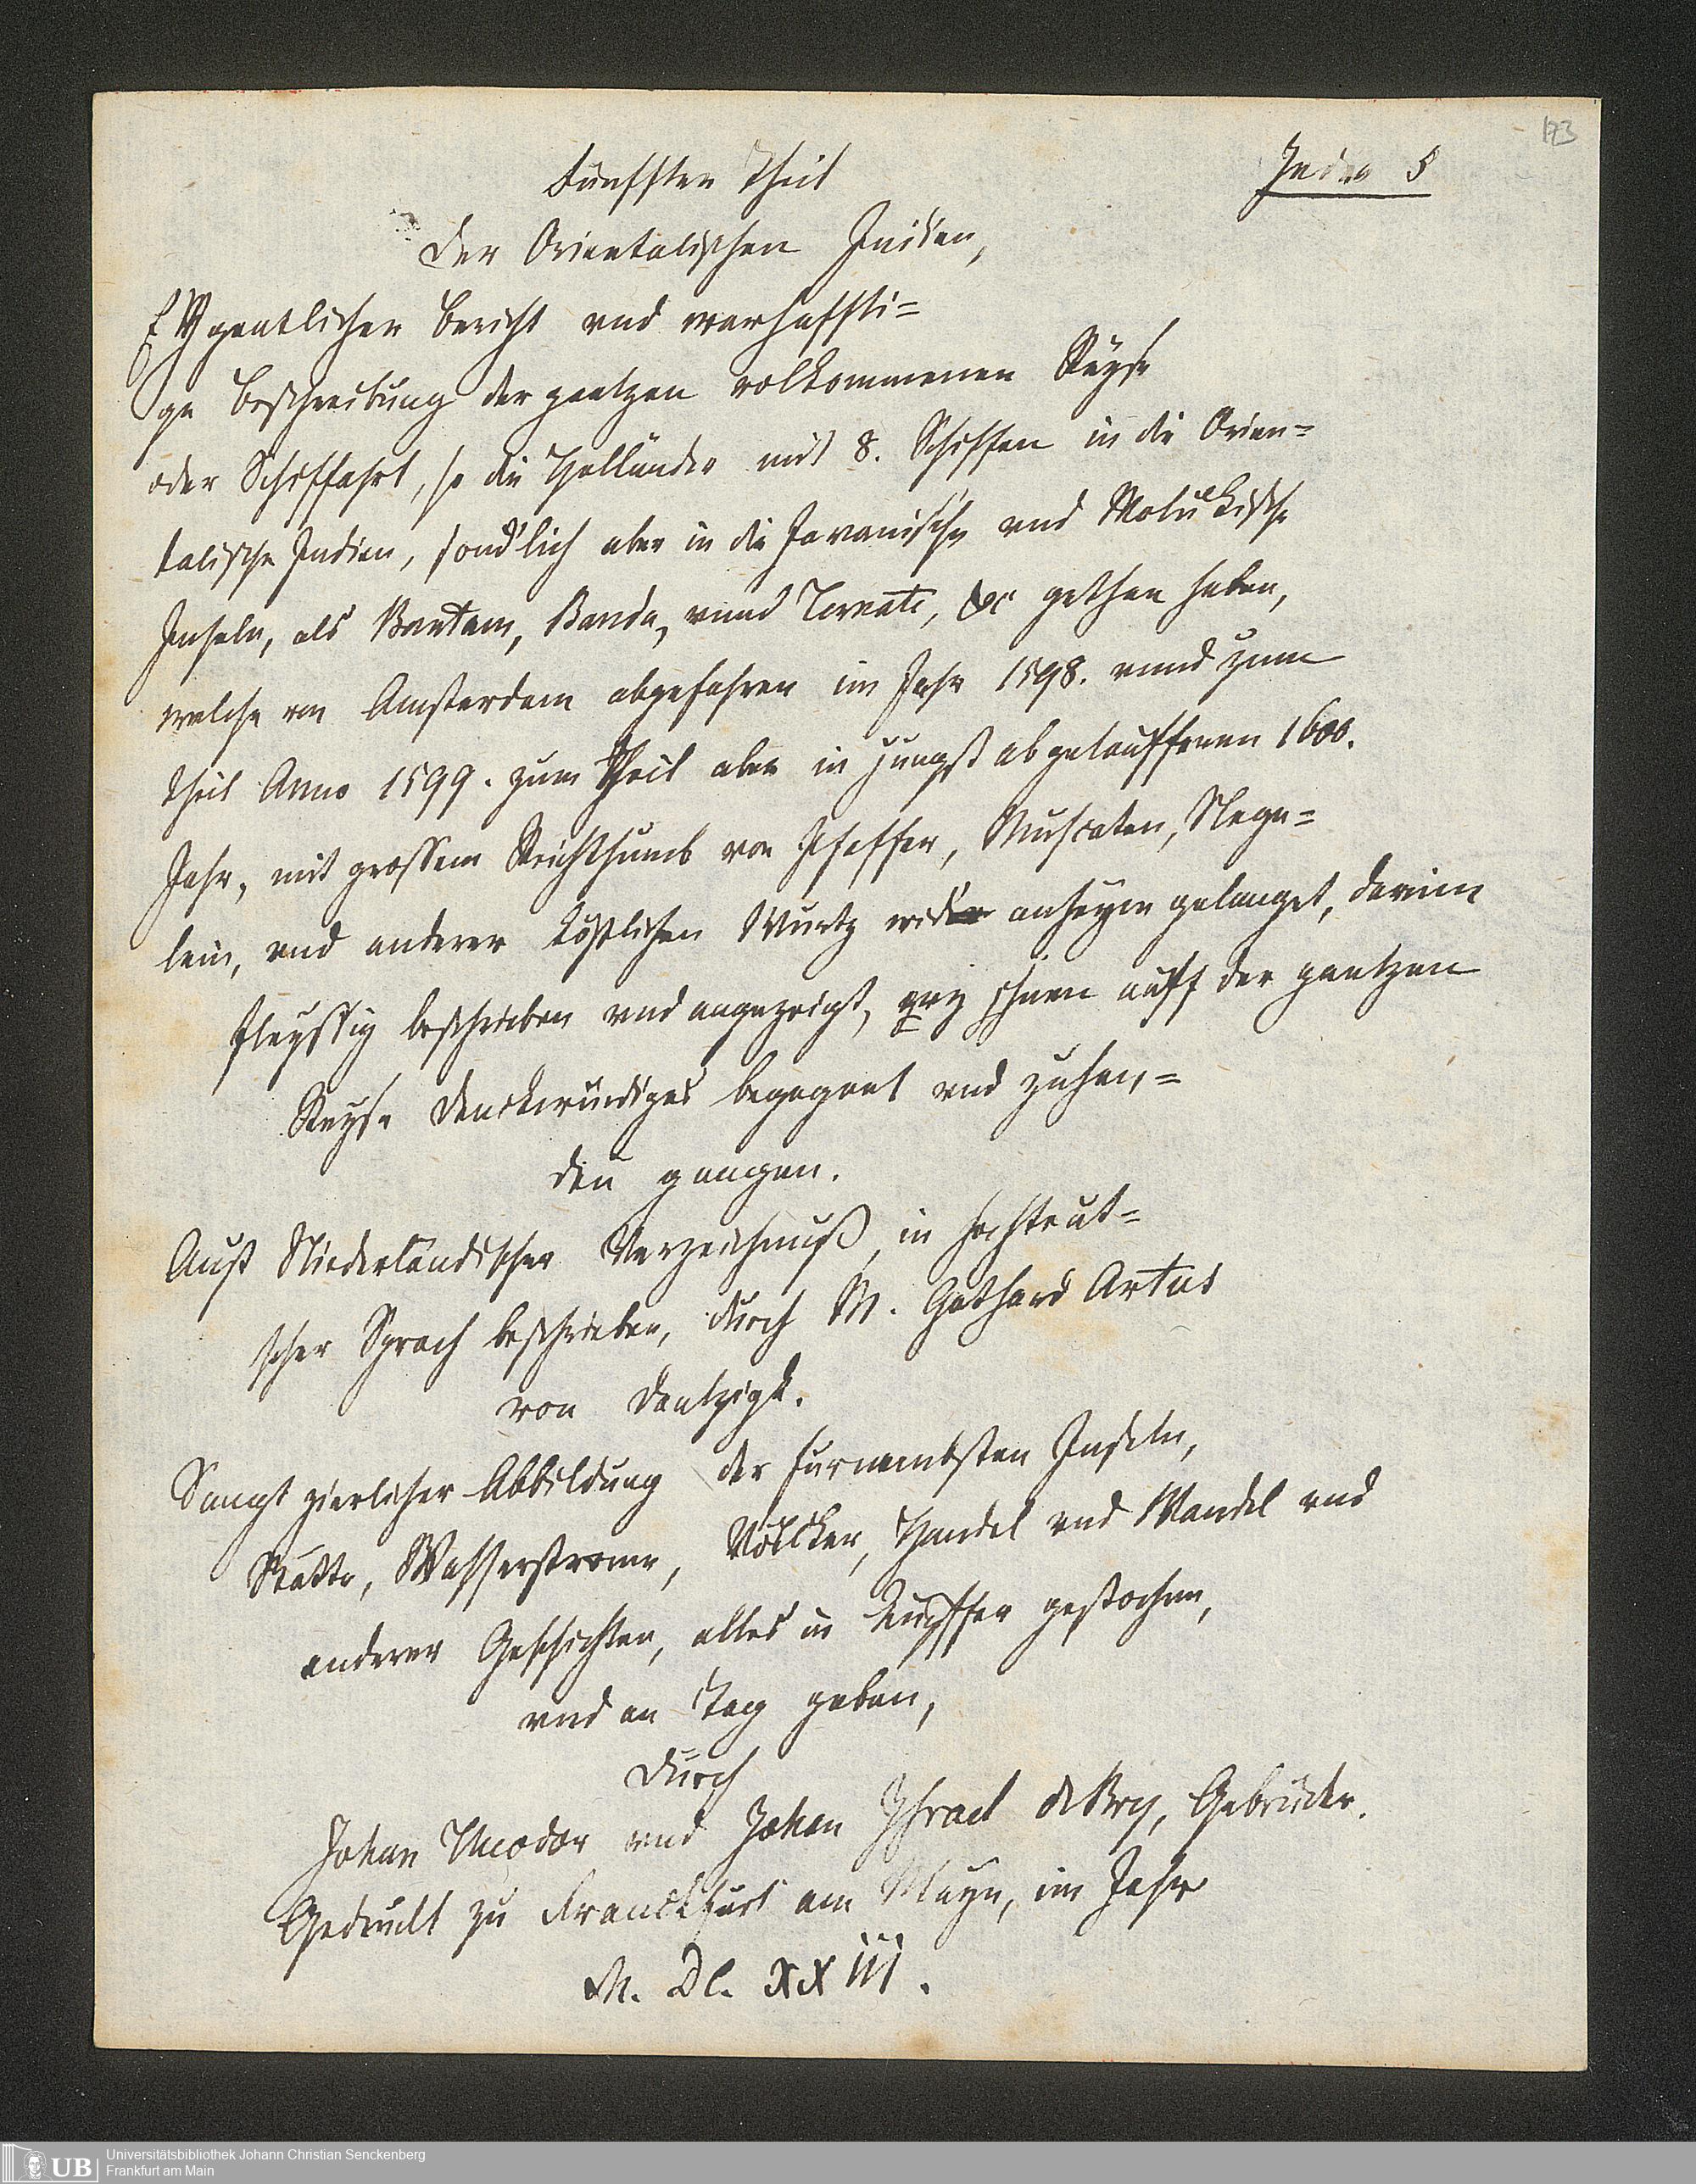 173
Fünffter Theil
India 5
Der Orientalischen Indien,
EYgentlicher Bericht vnd warhaffti=
ge Beschreibung der gantzen volkommenen Reyse
oder Schiffahrt, so die Holländer mit 8. Schiffen in die Orien=
talische Indien, sond'lich aber in die Javanische vnd Molukische
Inseln, als Bantam, Banda, vnnd Ternate, &c gethan haben,
welche von Amsterdam abgefahren im Jahr 1598. vnnd zum
theil Anno 1599. zum Theil aber in jungst abgelauffenen 1600.
Jahr, mit grossem Reichthumb von Pfeffer, Muscaten, Nege=
lein, vnd anderer köstlichen Wurtz wider anheym gelanget, darinn
fleyssig beschrieben vnd angezeigt, ihnen auff der gantzen
Reyse denckwürdiges begegnet vnd zuhan,=
den gangen.
Auß Niederländischer Verzeichnuß, in Hochteut=
scher Sprach beschrieben, durch M. Gothard Artus
von Dantzigk.
Sampt zierlicher Abbildung der furnembsten Inseln,
Stätte, Wasserstrome, Völcker, Handel vnd Wandel vnd
anderer Geschichten, alles in Kupffer gestochen,
vnd an Tag geben,
Durch
Johan Theodor vnd Johan Israel de Bry, Gebrüder.
Gedruckt zu Franckfurt am Mayn, im Jahr
M. DC. XXiii.
UB
Universitätsbibliothek Johann Christian Senckenberg
Frankfurt am Main